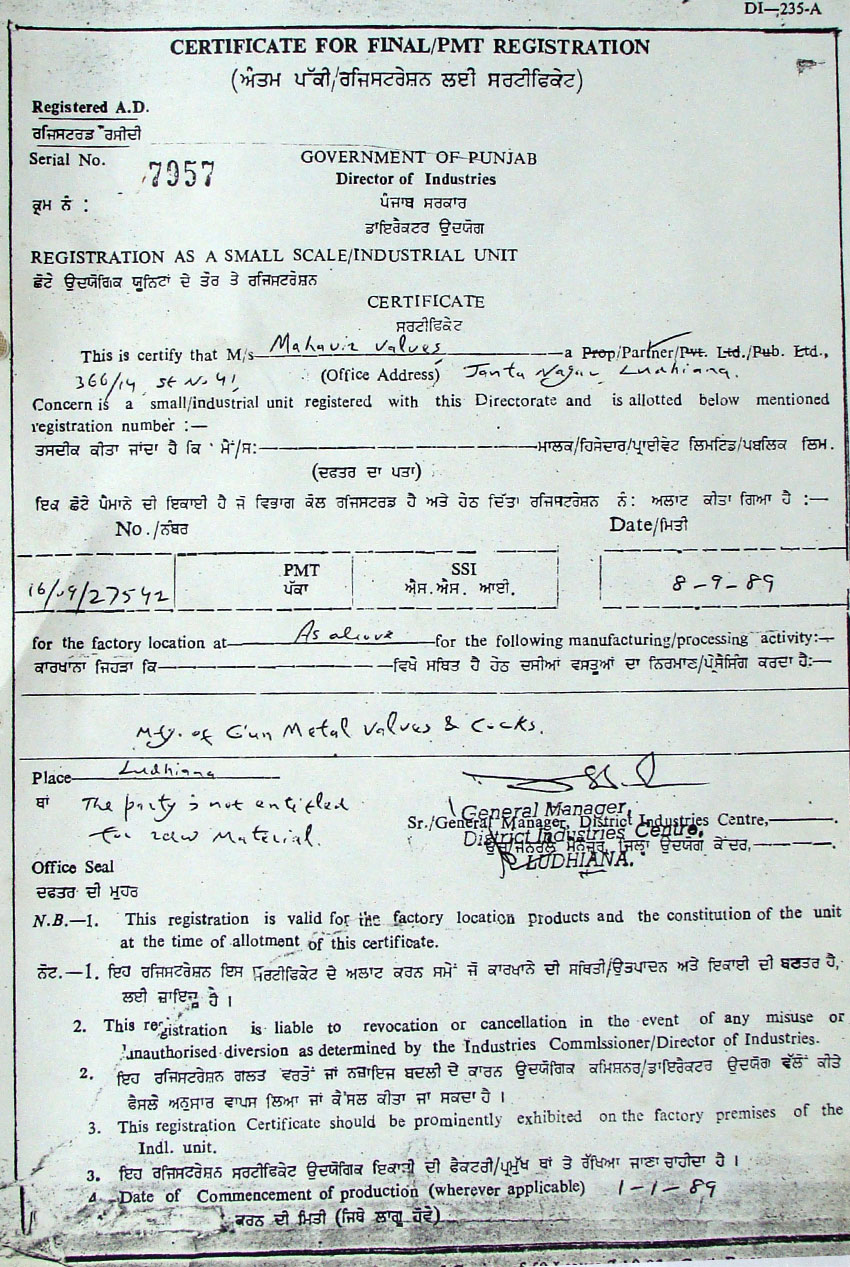 DI—235-A
CERTIFICATE FOR FINAL/PMT REGISTRATION
(ਅੰਤਮ ਪੱਕੀ/ਰਜਿਸਟਰੇਸ਼ਨ ਲਈ ਸਰਟੀਫਿਕੇਟ)
Registered A.D.
ਰਜਿਸਟਰਡ ਰਸੀਦੀ
Serial No. 7957
GOVERNMENT OF PUNJAB
Director of Industries
ਕ੍ਰਮ ਨੰ :
ਪੰਜਾਬ ਸਰਕਾਰ
ਡਾਇਰੈਕਟਰ ਉਦਯੋਗ
REGISTRATION AS A SMALL SCALE/INDUSTRIAL UNIT
ਛੋਟੇ ਉਦਯੋਗਿਕ ਯੂਨਿਟਾਂ ਦੇ ਤੌਰ ਤੇ ਰਜਿਸਟਰੇਸ਼ਨ
CERTIFICATE
ਸਰਟੀਫਿਕੇਟ
This is certify that M/s Mahavir Valves a Prop/Partner/Pvt. Ltd./Pub. Ltd.,
366/14 St No 41 (Office Address) Janta Nagar Ludhiana.
Concern is a small/industrial unit registered with this Directorate and is allotted below mentioned
registration number :—
ਤਸਦੀਕ ਕੀਤਾ ਜਾਂਦਾ ਹੈ ਕਿ ਮੈਂ/ਸ:——ਮਾਲਕ/ਹਿਸੇਦਾਰ/ਪ੍ਰਾਈਵੇਟ ਲਿਮਟਿਡ/ਪਬਲਿਕ ਲਿਮ.
(ਦਫਤਰ ਦਾ ਪਤਾ)
ਇਕ ਛੋਟੇ ਪੈਮਾਨੇ ਦੀ ਇਕਾਈ ਹੈ ਜੋ ਵਿਭਾਗ ਕੋਲ ਰਜਿਸਟਰਡ ਹੈ ਅਤੇ ਹੇਠ ਦਿੱਤਾ ਰਜਿਸਟਰੇਸ਼ਨ ਨੰ: ਅਲਾਟ ਕੀਤਾ ਗਿਆ ਹੈ :—
No./ਨੰਬਰ Date/ਮਿਤੀ
PMT SSI
16/09/27542 ਪੱਕਾ ਐਸ.ਐਸ. ਆਈ. 8-9-89
for the factory location at As above for the following manufacturing/processing activity:—
ਕਾਰਖਾਨਾ ਜਿਹੜਾ ਕਿ——ਵਿਖੇ ਸਥਿਤ ਹੈ ਹੇਠ ਦਸੀਆਂ ਵਸਤੂਆਂ ਦਾ ਨਿਰਮਾਣ/ਪ੍ਰੋਸੈਸਿੰਗ ਕਰਦਾ ਹੈ:—
Mfg. of Gun Metal Valves & Cocks.
Place Ludhiana
ਥਾਂ The party is not entitled
for raw Material.
General Manager,
Sr./General Manager, District Industries Centre,——.
District Industries Centre,
ਉਚ/ਜਨਰਲ ਮੈਨੇਜਰ, ਜਿਲਾ ਉਦਯੋਗ ਕੇਂਦਰ,——.
LUDHIANA.
Office Seal
ਦਫਤਰ ਦੀ ਮੁਹਰ
N.B.—1. This registration is valid for the factory location products and the constitution of the unit
at the time of allotment of this certificate.
ਨੋਟ.—1. ਇਹ ਰਜਿਸਟਰੇਸ਼ਨ ਇਸ ਸਰਟੀਫਿਕੇਟ ਦੇ ਅਲਾਟ ਕਰਨ ਸਮੇਂ ਜੋ ਕਾਰਖਾਨੇ ਦੀ ਸਥਿਤੀ/ਉਤਪਾਦਨ ਅਤੇ ਇਕਾਈ ਦੀ ਬਣਤਰ ਹੈ,
ਲਈ ਜ਼ਾਇਜ਼ ਹੈ ।
2. This registration is liable to revocation or cancellation in the event of any misuse or
unauthorised diversion as determined by the Industries Commissioner/Director of Industries.
2. ਇਹ ਰਜਿਸਟਰੇਸ਼ਨ ਗਲਤ ਵਰਤੋਂ ਜਾਂ ਨਜ਼ਾਇਜ ਬਦਲੀ ਦੇ ਕਾਰਨ ਉਦਯੋਗਿਕ ਕਮਿਸ਼ਨਰ/ਡਾਇਰੈਕਟਰ ਉਦਯੋਗ ਵੱਲੋਂ ਕੀਤੇ
ਫੈਸਲੇ ਅਨੁਸਾਰ ਵਾਪਸ ਲਿਆ ਜਾਂ ਕੈਂਸਲ ਕੀਤਾ ਜਾ ਸਕਦਾ ਹੈ ।
3. This registration Certificate should be prominently exhibited on the factory premises of the
Indl. unit.
3. ਇਹ ਰਜਿਸਟਰੇਸ਼ਨ ਸਰਟੀਫਿਕੇਟ ਉਦਯੋਗਿਕ ਇਕਾਈ ਦੀ ਫੈਕਟਰੀ/ਪ੍ਰਮੁੱਖ ਥਾਂ ਤੇ ਰੱਖਿਆ ਜਾਣਾ ਚਾਹੀਦਾ ਹੈ ।
4 Date of Commencement of production (wherever applicable) 1-1-89
ਕਰਨ ਦੀ ਮਿਤੀ (ਜਿਥੇ ਲਾਗੂ ਹੋਵੇ)